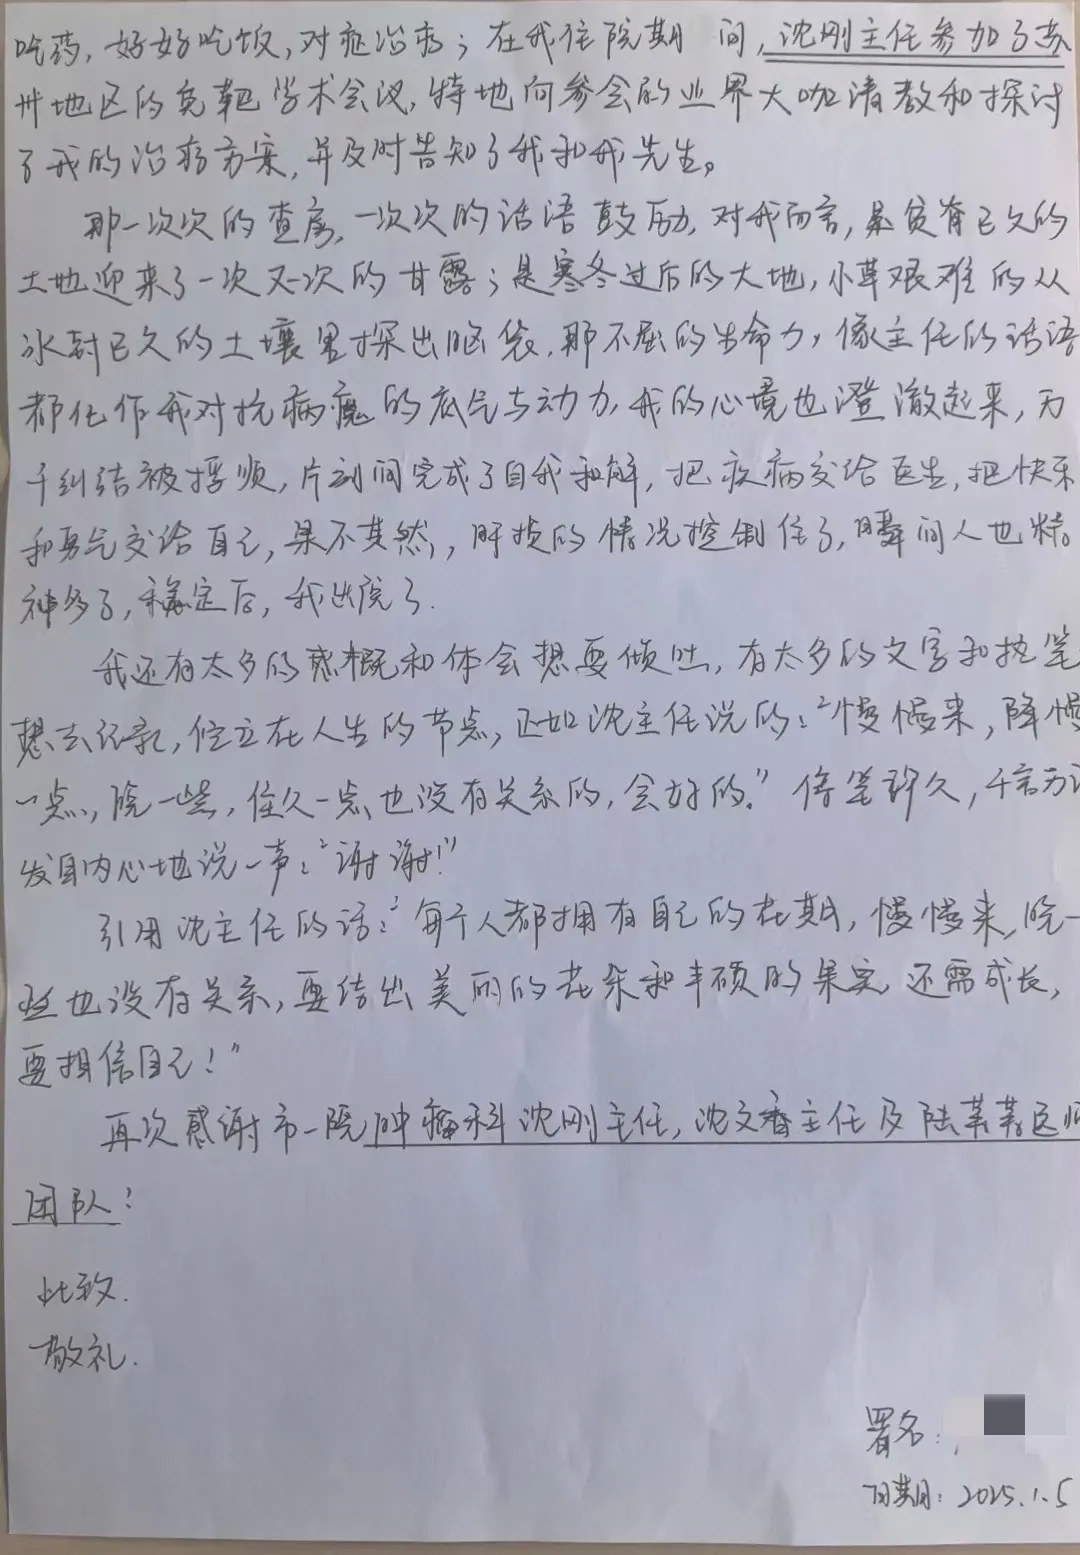 吃药，好好吃饭，对症治疗；在我住院期间，沈刚主任参加了苏
州地区的免靶学术会议，特地向参会的业界大咖请教和探讨
了我的治疗方案，并及时告知了我和我先生。
那一次次的查房，一次次的话语鼓励，对我而言，是贫瘠已久的
土地迎来了一次又一次的甘露；是寒冬过后的大地，小草艰难的从
冰封已久的土壤里探出脑袋，那不屈的生命力，像主任的话语
都化作我对抗病魔的底气与动力，我的心境也澄澈起来，万
千纠结被捋顺，片刻间完成了自我和解，把疾病交给医生，把快乐
和勇气交给自己，果不其然，肝损的情况控制住了，瞬间人也精
神多了，稳定后，我出院了.
我还有太多的感概和体会想要倾吐，有太多的文字和执笔
想去记录，伫立在人生的节点，还如沈主任说的："慢慢来，降慢
一点，晚一些，住久一点也没有关系的，会好的."停笔许久，千言万语
发自内心地说一声："谢谢!"
引用沈主任的话："每个人都拥有自己的花期，慢慢来，晚一
些也没有关系，要结出美丽的花朵和丰硕的果实，还需成长，
要相信自己！"
再次感谢市一院肿瘤科沈刚主任，沈文香主任及陆苇苇医师
团队！
此致.
敬礼.
署名：
日期：2025.1.5